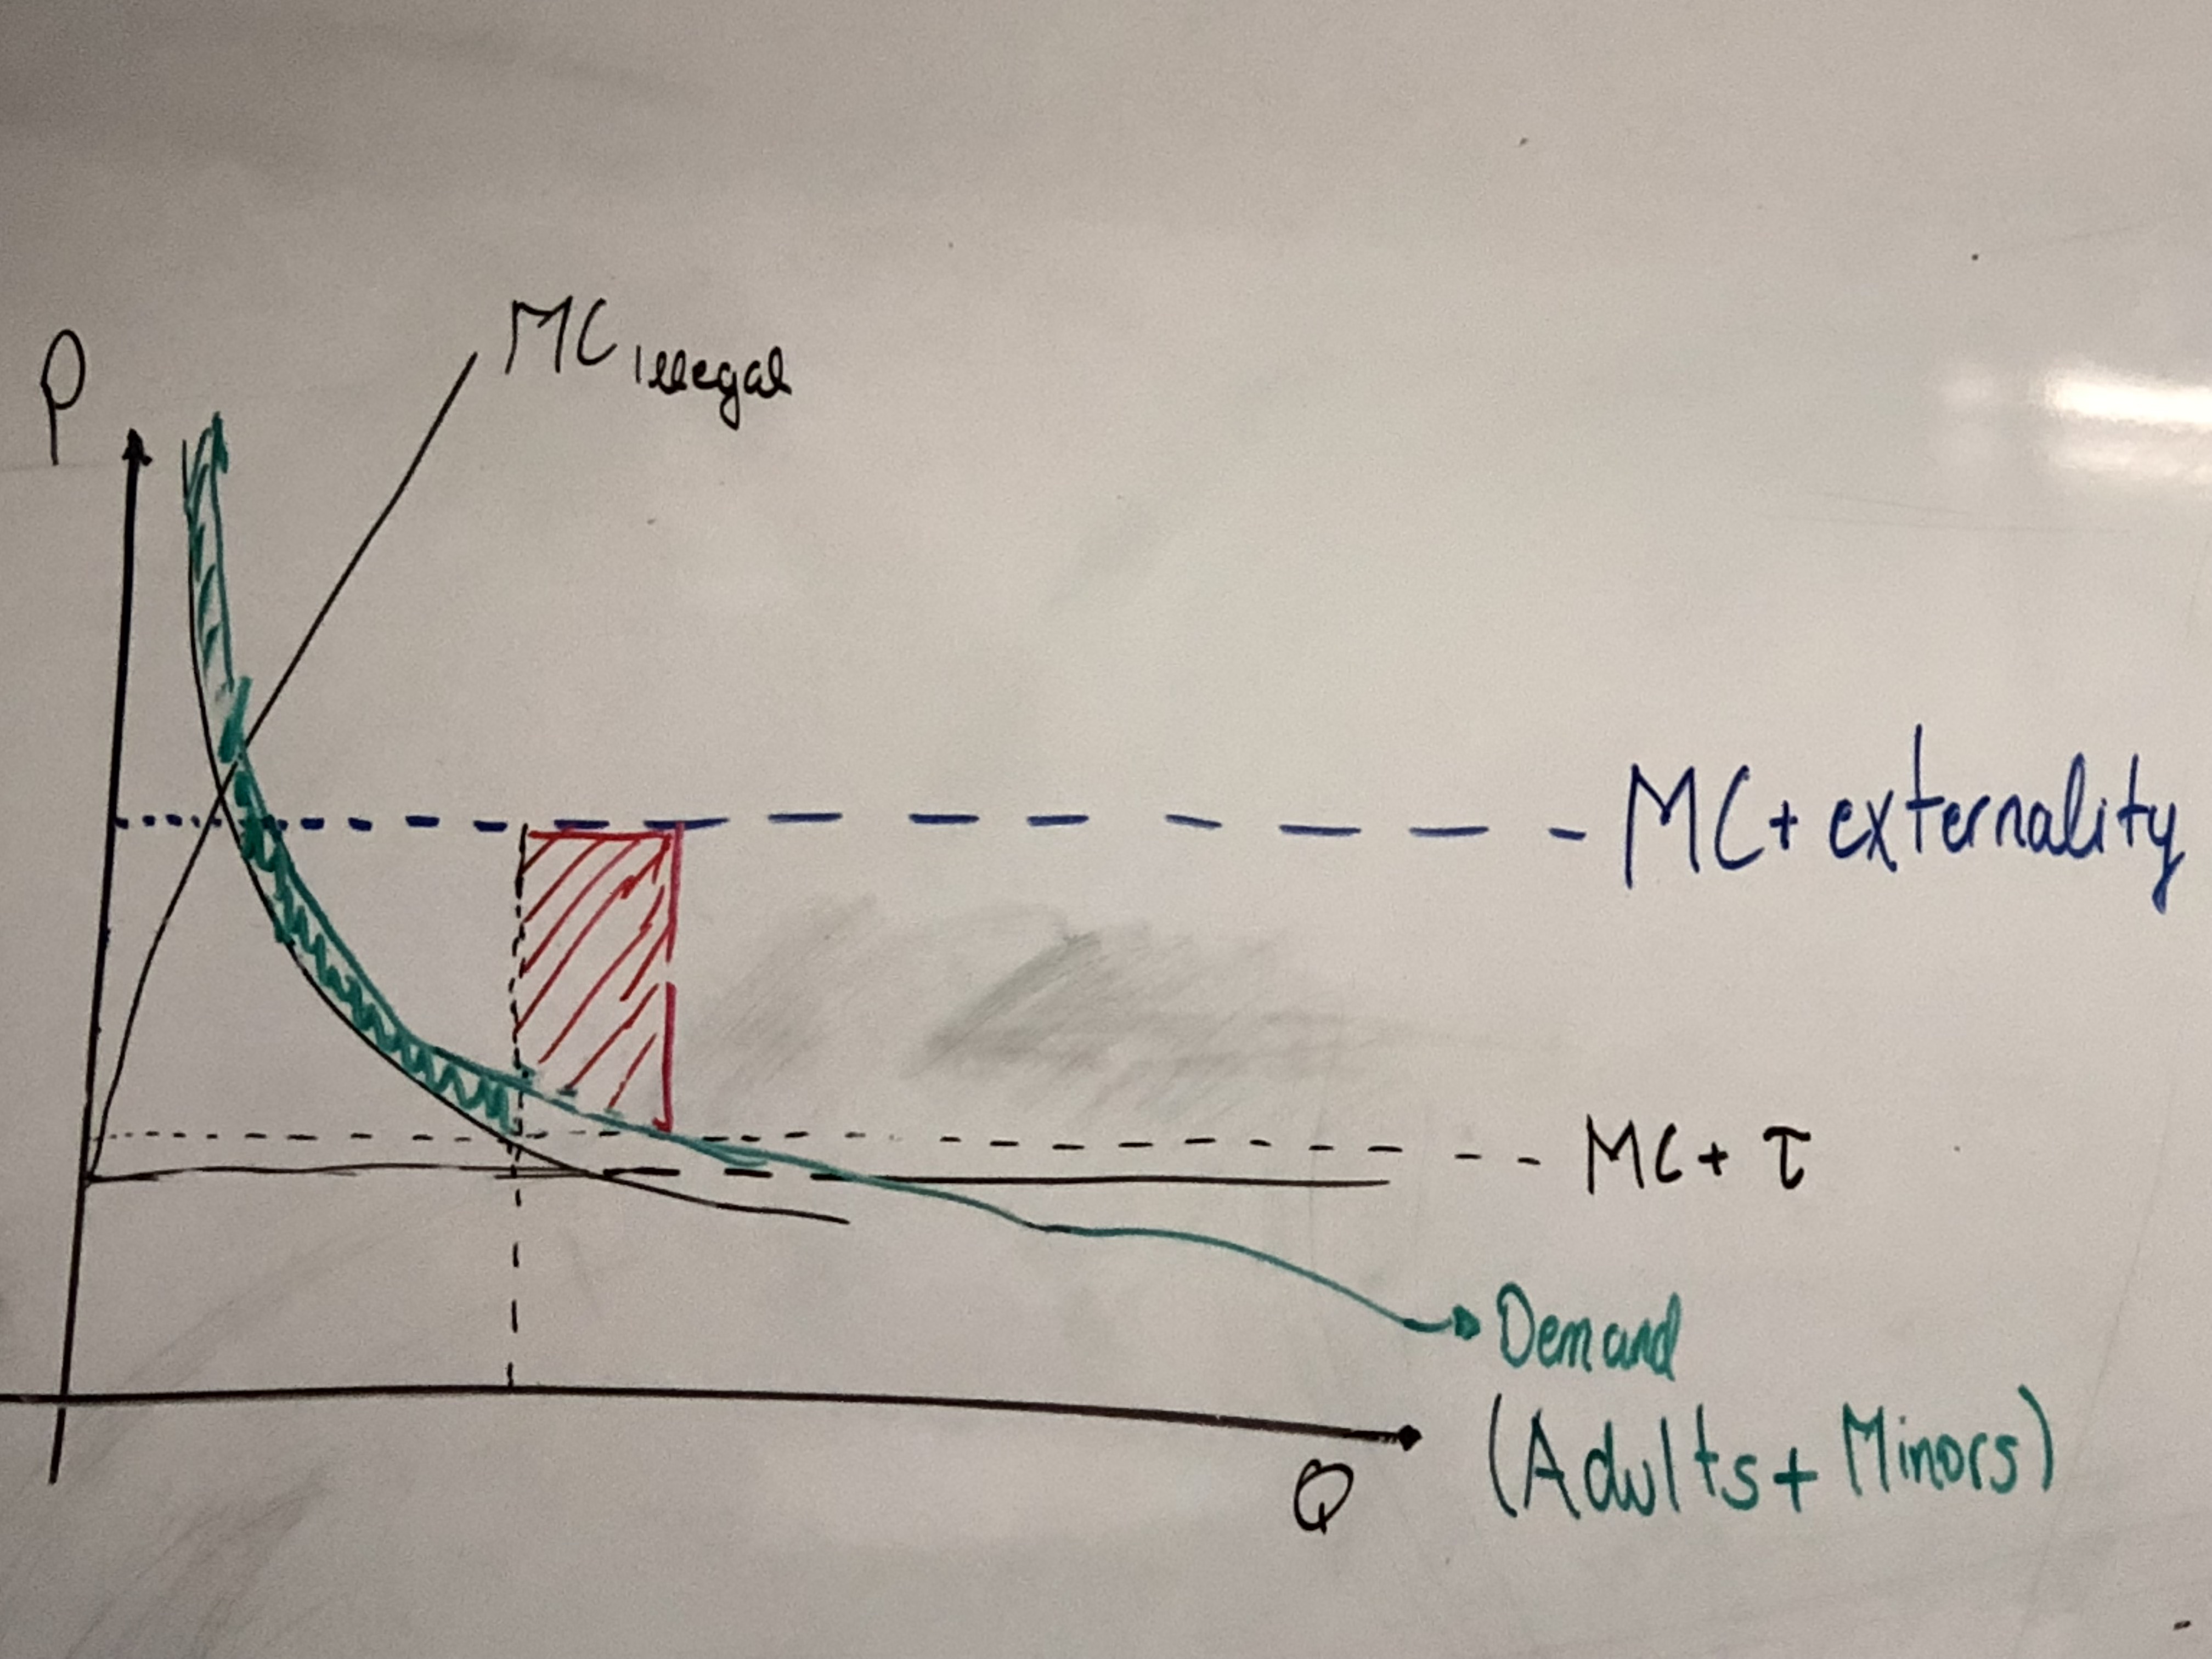 MC illegal
P
MC + externality
MC + τ
Demand
(Adults + Minors)
Q